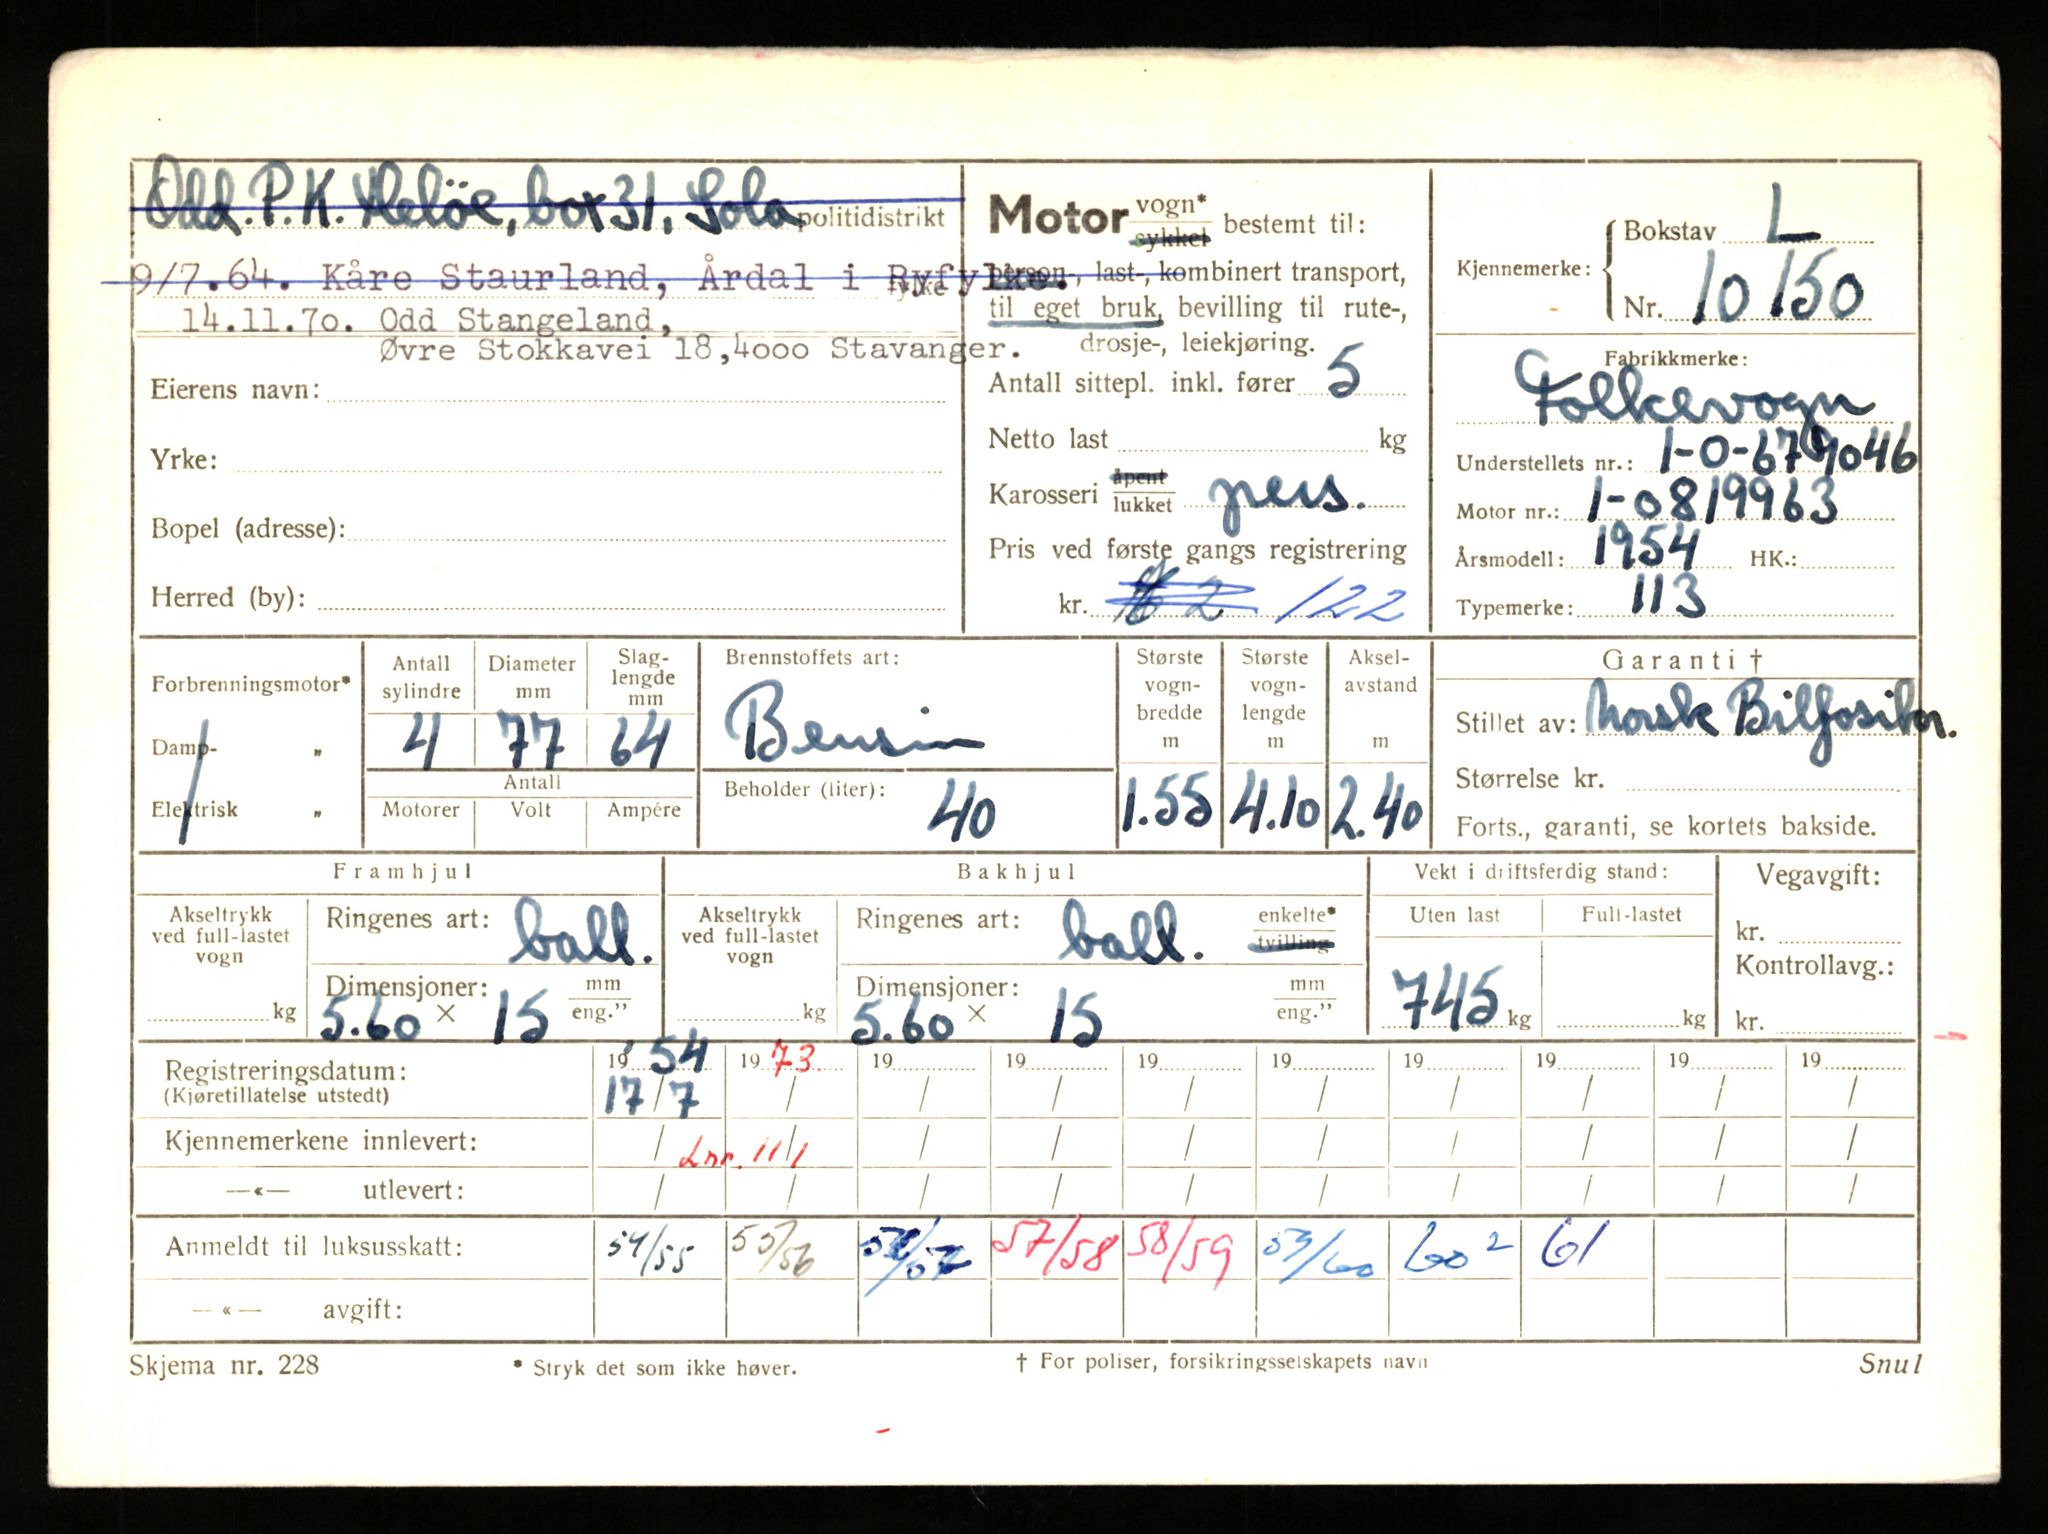 Odd. P. K. Meløe, box 31, Sola politidistrikt
9/7.64. Kåre Staurland, Årdal i Ryfylke. fylke
14.11.70. Odd Stangeland,
Øvre Stokkavei 18,4000 Stavanger.
Eierens navn:
Yrke:
Bopel (adresse):
Herred (by):
Motor vogn* sykkel bestemt til:
person-, last-, kombinert transport,
til eget bruk, bevilling til rute-,
drosje-, leiekjøring.
Antall sittepl. inkl. fører 5
Netto last kg
Karosseri åpent lukket pers.
Pris ved første gangs registrering
kr. 122
Kjennemerke: Bokstav L
Nr. 10150
Fabrikkmerke:
Folkevogn
Understellets nr.: 1-0-679046
Motor nr.: 1-0819963
Årsmodell: 1954 HK.:
Typemerke: 113
Forbrenningsmotor*
Damp- „
Elektrisk „
Antall sylindre 4
Diameter mm 77
Slag-lengde mm 64
Antall
Motorer Volt Ampére
Brennstoffets art:
Bensin
Beholder (liter): 40
Største vogn-bredde m 1.55
Største vogn-lengde m 4.10
Aksel-avstand m 2.40
Garanti †
Stillet av: Norsk Bilforsikr.
Størrelse kr.
Forts., garanti, se kortets bakside.
Framhjul
Akseltrykk ved full-lastet vogn kg
Ringenes art: ball.
Dimensjoner: mm
5.60 × 15 eng.”
Bakhjul
Akseltrykk ved full-lastet vogn kg
Ringenes art: ball. enkelte* tvilling
Dimensjoner: mm
5.60 × 15 eng.”
Vekt i driftsferdig stand:
Uten last Full-lastet
745 kg kg
Vegavgift:
kr.
Kontrollavg.:
kr.
Registreringsdatum: 19 54 19 73. 19 19 19 19 19 19 19 19
(Kjøretillatelse utstedt) 17/7 / / / / / / / / /
Kjennemerkene innlevert: / Lnr. 11/1 / / / / / / / /
—«— utlevert: / / / / / / / / / /
Anmeldt til luksusskatt: 54/55 55/56 57/58 58/59 59/60 60² 61
—«— avgift:
Skjema nr. 228 * Stryk det som ikke høver. † For poliser, forsikringsselskapets navn Snul